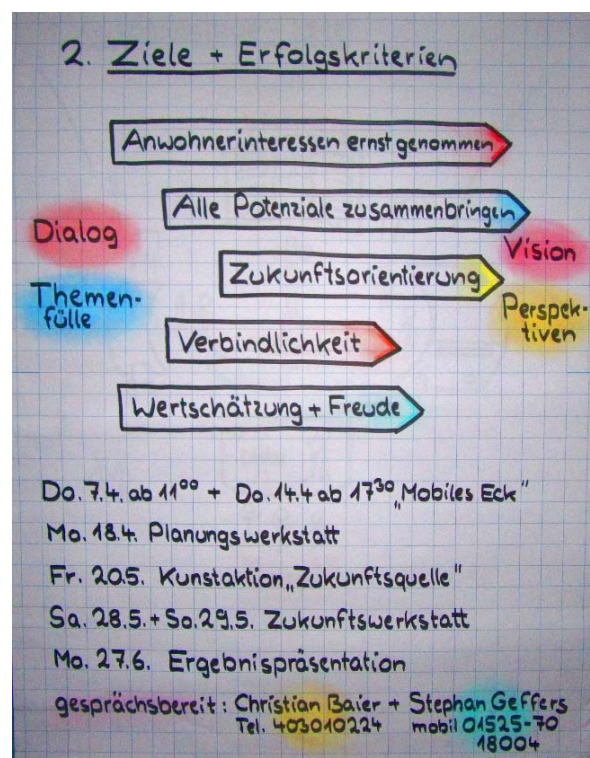 2. Ziele + Erfolgskriterien
Anwohnerinteressen ernst genommen
Alle Potenziale zusammenbringen
Dialog
Vision
Zukunftsorientierung
Themen-
fülle
Perspek-
tiven
Verbindlichkeit
Wertschätzung + Freude
Do. 7.4. ab 11⁰⁰ + Do. 14.4 ab 17³⁰ „Mobiles Eck"
Mo. 18.4. Planungswerkstatt
Fr. 20.5. Kunstaktion „Zukunftsquelle"
Sa. 28.5. + So. 29.5. Zukunftswerkstatt
Mo. 27.6. Ergebnispräsentation
gesprächsbereit: Christian Baier + Stephan Geffers
Tel. 403010224 mobil 01525-70
18004